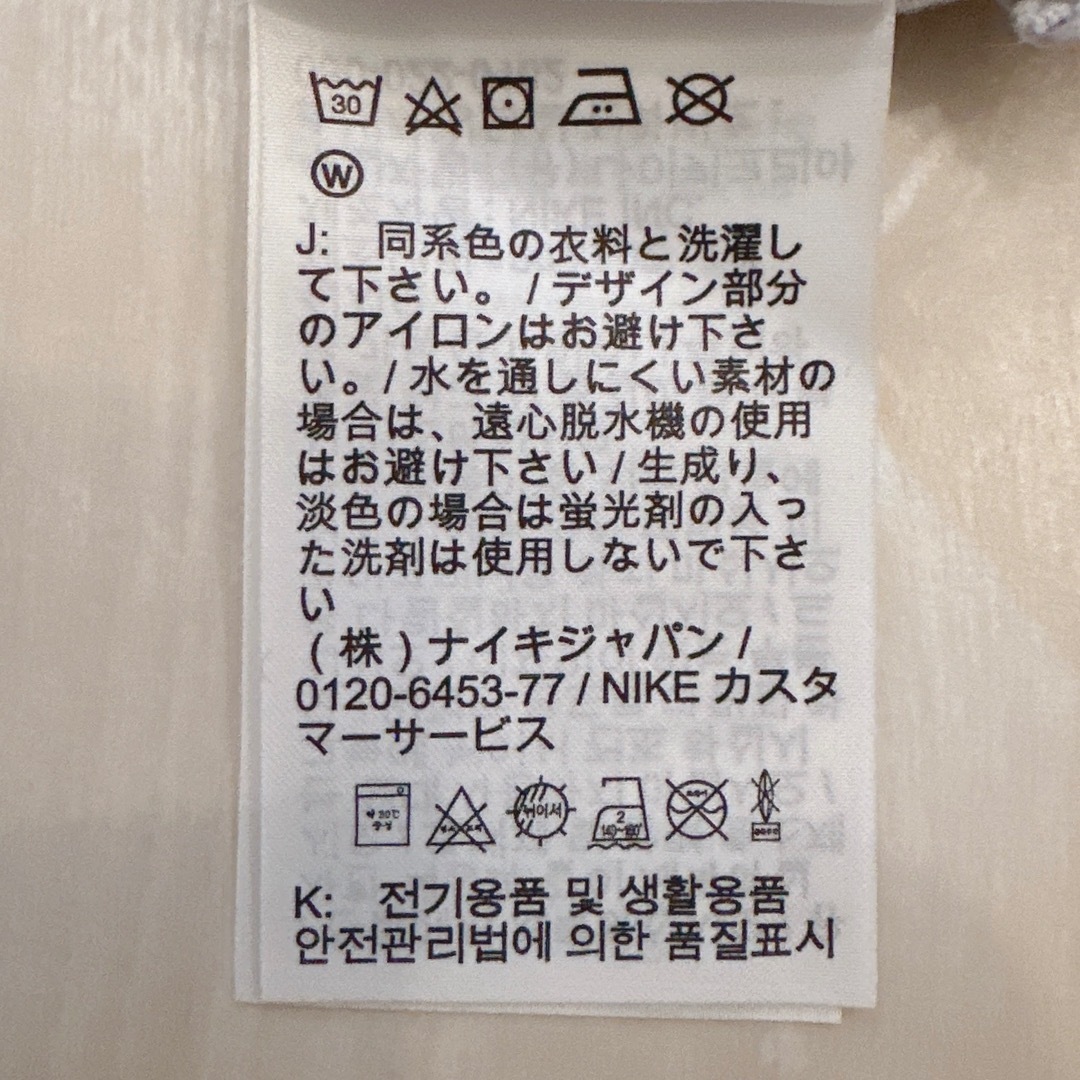 30
W
J: 同系色の衣料と洗濯し
て下さい。/デザイン部分
のアイロンはお避け下さ
い。/ 水を通しにくい素材の
場合は、遠心脱水機の使用
はお避け下さい / 生成り、
淡色の場合は蛍光剤の入っ
た洗剤は使用しないで下さ
い
(株)ナイキジャパン /
0120-6453-77 / NIKE カスタ
マーサービス
약 30℃ 뉘어서 2
중성 140~160℃
K: 전기용품 및 생활용품
안전관리법에 의한 품질표시